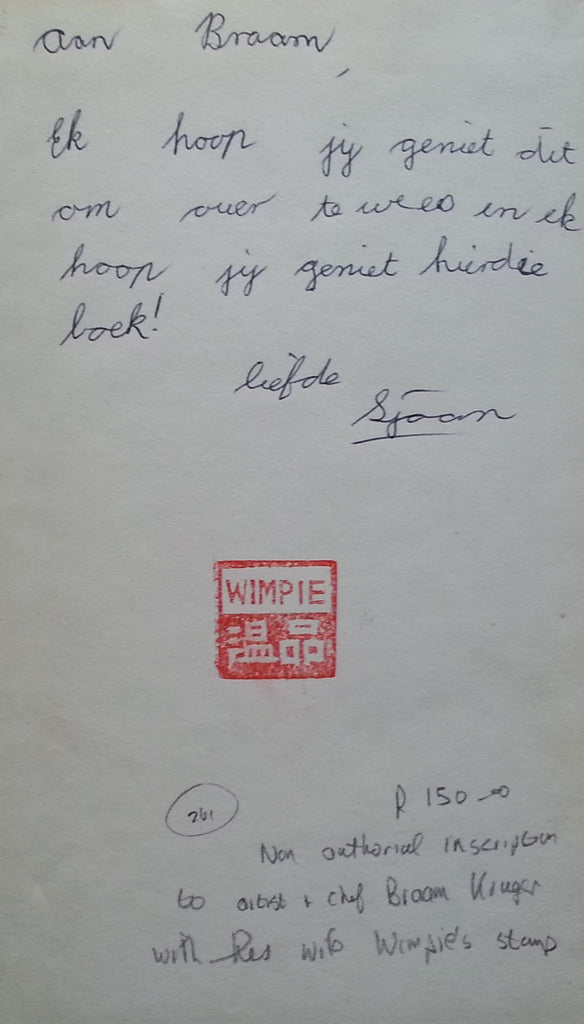 aan Braam,
Ek hoop jy geniet dit
om ouer te wees en ek
hoop jy geniet hierdie
boek!
liefde
Sjaan
WIMPIE
温品
261
R 150-00
Non authorial inscription
to artist + chef Braam Kruger
with his wife Wimpie's stamp